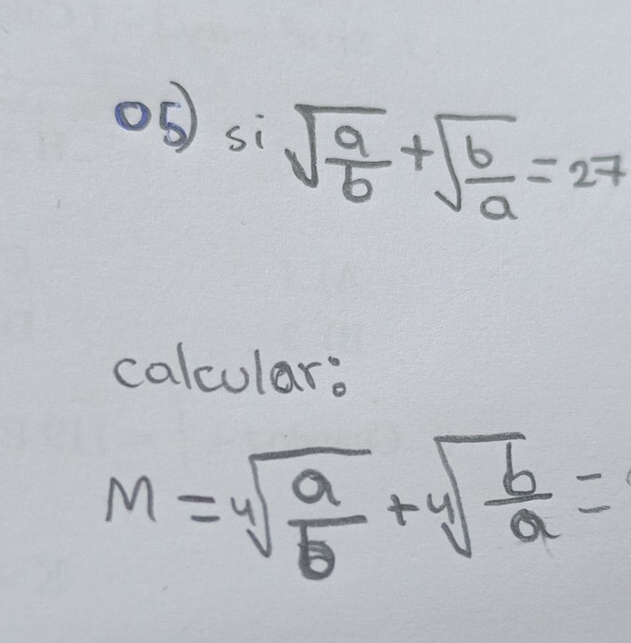 05) si √(a/b) + √(b/a) = 27
calcular:
M = ⁴√(a/b) + ⁴√(b/a) =